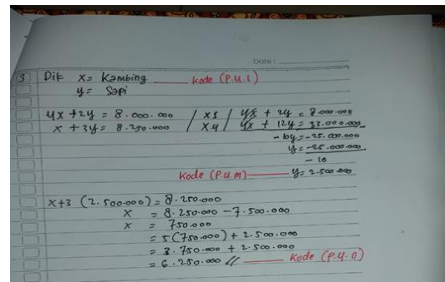 Date:
3 Dik x= Kambing kode (P.U.1)
y= Sapi
4x + 2y = 8.000.000 / x1 / 4x + 2y = 8.000.000
x + 3y = 8.250.000 / x4 / 4x + 12y = 33.000.000
- 10y = -25.000.000
y = -25.000.000
- 10
Kode (P.U.m) y = 2.500.000
x+3 (2.500.000) = 8.250.000
x = 8.250.000 - 7.500.000
x = 750.000
= 5(750.000) + 2.500.000
= 3.750.000 + 2.500.000
= 6.250.000 // Kode (P.U.0)